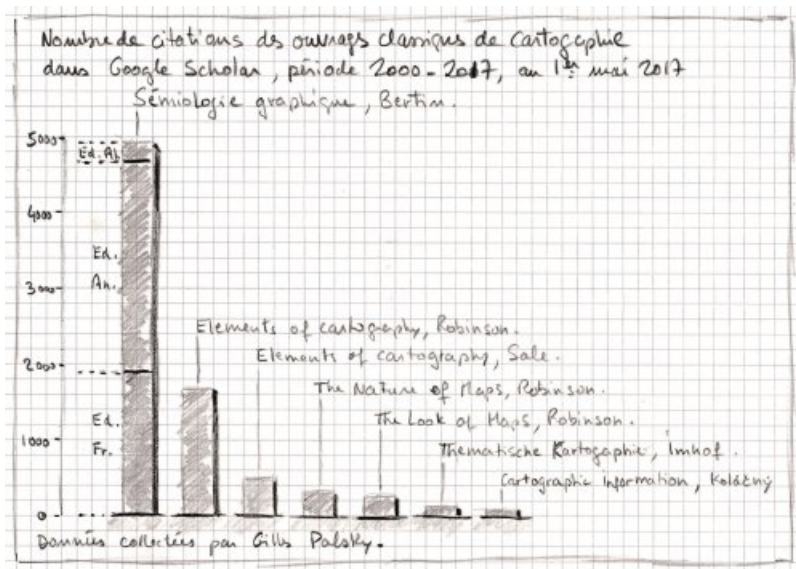 Nombre de citations ds ouvrages classiques de cartographie
dans Google Scholar, période 2000-2017, au 1er mai 2017
Sémiologie graphique, Bertin.
5000
Ed. Al.
4000
Ed.
An.
3000
Elements of cartography, Robinson.
Elements of cartography, Sale.
2000
The Nature of Maps, Robinson.
The Look of Maps, Robinson.
Ed.
Fr.
1000
Thematische Kartographie, Imhof.
Cartographic information, Koláčný
0
Données collectées par Gilles Palsky.